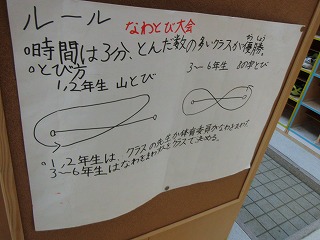 ルール
なわとび大会
○時間は3分、とんだ数の多いクラスが優勝。
ゆうしょう
○とび方
1,2年生 山とび
3〜6年生 8の字とび
○1,2年生は、クラスの先生か体育委員がなわをまわす
3〜6年生はなわをまわす人をクラスで決める。